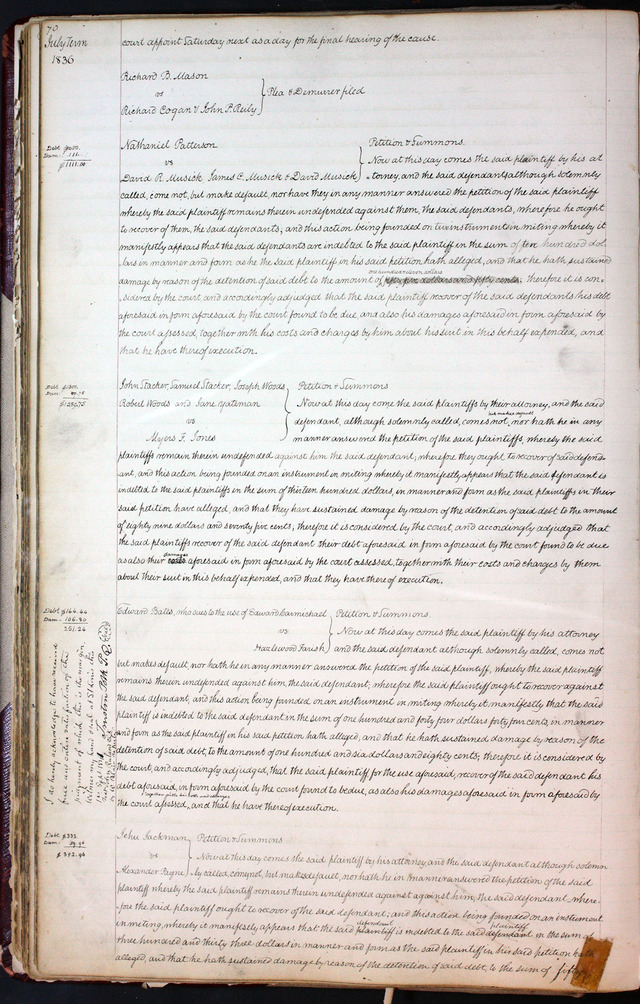 70
July Term
1836
court appoint Saturday next as a day for the final hearing of the cause.
Richard B. Mason
vs
Plea & Demurrer filed
Richard Cogan & John P. Reily
Debt
Dam:
$1111.00
Nathaniel Patterson
Petition & Summons.
vs
Now at this day comes the said plaintiff by his at
David R. Musick James C. Musick & David Musick
torney, and the said defendants although solemnly
called, come not, but make default, nor have they in any manner answered the petition of the said plaintiff
whereby the said plaintiff remains therein undefended against them, the said defendants, wherefore he ought
to recover of them, the said defendants, and this action being founded on two instruments in writing whereby it
manifestly appears that the said defendants are indebted to the said plaintiff in the sum of ten hundred dol
lars in manner and form as he the said plaintiff in his said petition hath alleged, and that he hath sustained
one hundred eleven dollars
damage by reason of the detention of said debt to the amount of fifty five dollars and fifty cents; therefore it is con-
sidered by the court and accordingly adjudged that the said plaintiff recover of the said defendants his debt
aforesaid in form aforesaid by the court found to be due, and also his damages aforesaid in form aforesaid by
the court assessed, together with his costs and charges by him about his suit in this behalf expended, and
that he have thereof execution.
Debt
Dam:
John Stacker, Samuel Stacker, Joseph Woods
Petition & Summons
Robert Woods and Jane Yateman
Now at this day come the said plaintiffs by their attorney, and the said
but makes default
vs
defendant, although solemnly called, comes not, nor hath he in any
Myers F. Jones
manner answered the petition of the said plaintiffs, whereby the said
plaintiffs remain therein undefended against him the said defendant, wherefore they ought to recover of said defend-
ant, and this action being founded on an instrument in writing whereby it manifestly appears that the said defendant is
indebted to the said plaintiffs in the sum of thirteen hundred dollars, in manner and form as the said plaintiffs in their
said petition have alleged, and that they have sustained damage by reason of the detention of said debt to the amount
of eighty nine dollars and seventy five cents; therefore it is considered by the court, and accordingly adjudged that
the said plaintiffs recover of the said defendant their debt aforesaid in form aforesaid by the court found to be due
damages
as also their costs aforesaid in form aforesaid by the court assessed, together with their costs and charges by them
about their suit in this behalf expended, and that they have thereof execution.
Debt $144.44
Dam: 106.80
251.24
Edward Bates, who sues to the use of Edward Carmichael
Petition & Summons.
vs
Now at this day comes the said plaintiff by his attorney
Hazlewood Farish
and the said defendant although solemnly called, comes not
but makes default, nor hath he in any manner answered the petition of the said plaintiff, whereby the said plaintiff
remains therein undefended against him, the said defendant; wherefore the said plaintiff ought to recover against
the said defendant, and this action being founded on an instrument in writing whereby it manifestly that the said
plaintiff is indebted to the said defendant in the sum of one hundred and forty four dollars forty four cents, in manner
and form as the said plaintiff in his said petition hath alleged, and that he hath sustained damage by reason of the
detention of said debt, to the amount of one hundred and six dollars and eighty cents; therefore it is considered by
the court, and accordingly adjudged, that the said plaintiff for the use aforesaid, recover of the said defendant his
debt aforesaid, in form aforesaid by the court found to be due, as also his damages aforesaid in form aforesaid by
together with his costs and charges
the court assessed, and that he have thereof execution.
I do hereby acknowledge to have received
full and entire satisfaction of the
judgment of which this is the margin
Witness my hand and seal at St Louis this
Debt $333
Dam:
Jehu Jackman
Petition & Summons
vs
Now at this day comes the said plaintiff by his attorney, and the said defendant although solemn
Alexander Payne
ly called, comes not, but makes default, nor hath he in manner answered the petition of the said
plaintiff whereby the said plaintiff remains therein undefended against against him, the said defendant where-
fore the said plaintiff ought to recover of the said defendant; and this action being founded on an instrument
defendant plaintiff
in writing, whereby it manifestly appears that the said plaintiff is indebted to the said defendant in the sum of
three hundred and thirty three dollars in manner and form as the said plaintiff in his said petition hath
alleged, and that he hath sustained damage by reason of the detention of said debt, to the sum of